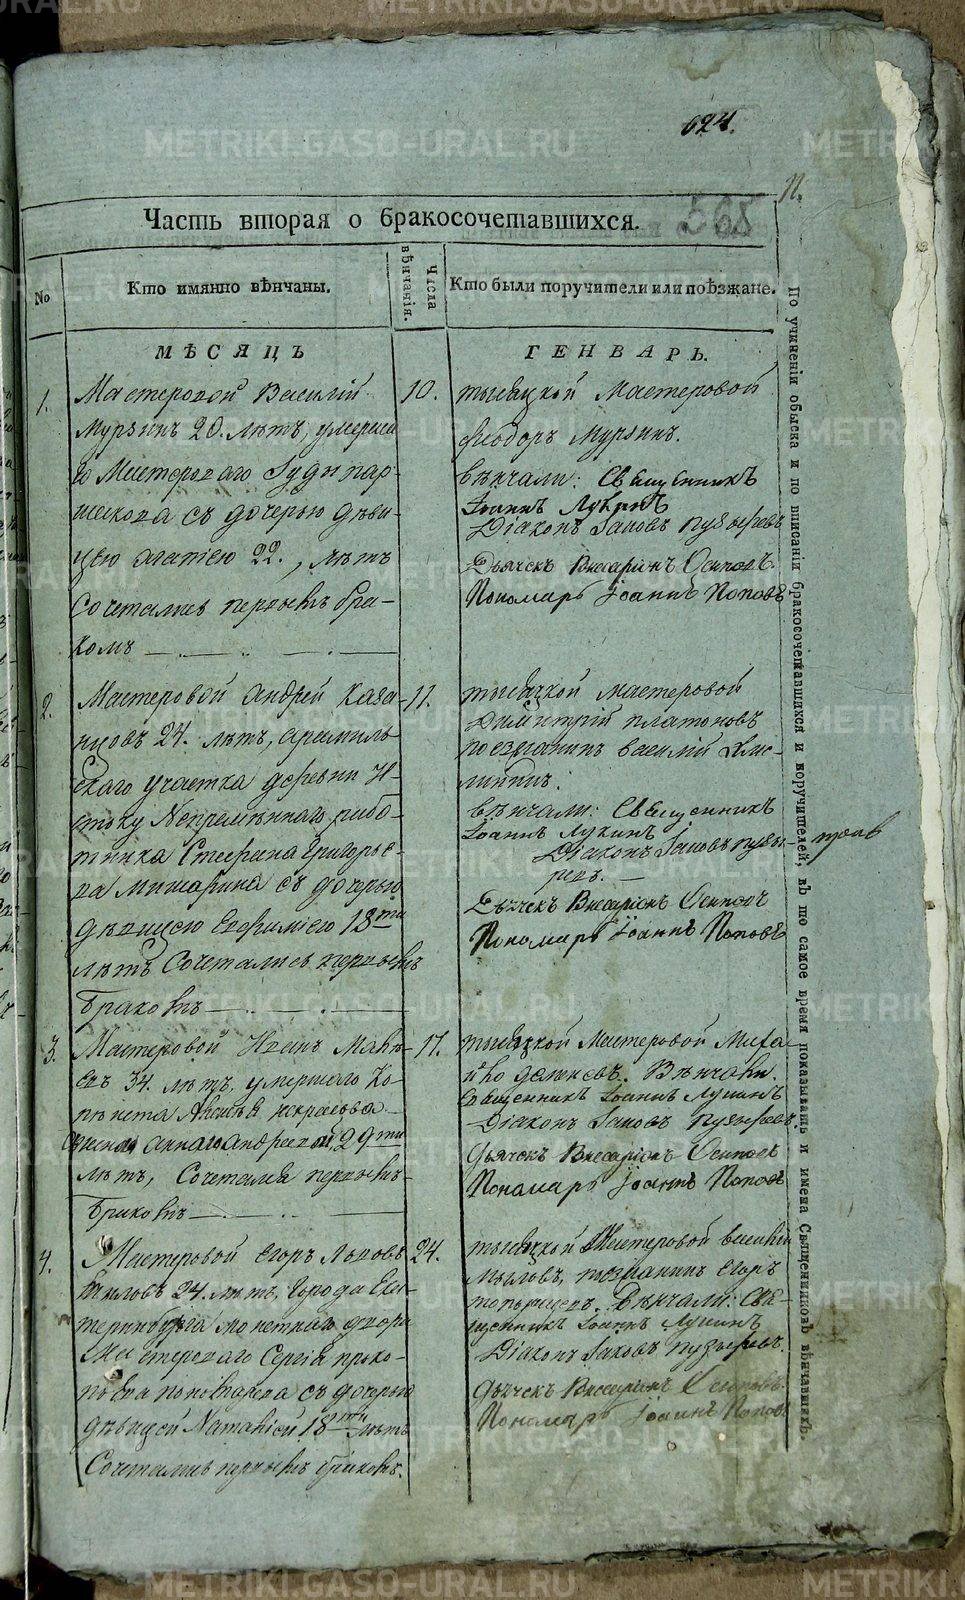 624.
Часть вторая о бракосочетавшихся. 568
№
Кто имянно вѣнчаны.
Числа вѣнчанія.
Кто были поручители или поѣзжане.
МѢСЯЦЪ
ГЕНВАРЬ.
1.
Мастеровой Василій
Мурзинъ 20. лѣтъ, умерша
го Мастероваго
съ дочерью дѣви-
цею Агатіею 22., лѣтъ
сочетались первымъ бра-
комъ
10.
тысяцкой Мастеровой
Феодоръ Мурзинъ.
вѣнчали: Священникъ
Іоаннъ Лукинъ
Діаконъ Іаковъ Пузыревъ
Дьячекъ Виссаріонъ Осиповъ
Пономарь Іоаннъ Поповъ
2.
Мастеровой Андрей Каза-
нцовъ 24. лѣтъ, арамиль-
скаго участка деревни И-
стоку Непремѣннаго рабо-
тника Стефана Григорье-
ва Мишарина съ дочерью
дѣвицею Евфиміею 18ти
лѣтъ сочетались первымъ
бракомъ
11.
тысяцкой мастеровой
Димитрій Платоновъ
поезжанинъ Василій
вѣнчали: Священникъ
Іоаннъ Лукинъ
Діаконъ Іаковъ Пузы-
ревъ.
Дьячекъ Виссаріонъ Осиповъ
Пономарь Іоаннъ Поповъ
3.
Мастеровой Иванъ
34. лѣтъ. умершаго
Некрасова
Анною Андреевой, 29ти
лѣтъ, сочетались первымъ
бракомъ
17.
тысяцкой Мастеровой Миха-
йло. Вѣнчали.
священникъ Іоаннъ Лукинъ
Діаконъ Іаковъ Пузыревъ.
Дьячекъ Виссаріонъ Осиповъ
Пономарь Іоаннъ Поповъ
4.
Мастеровой Егоръ Львовъ
24. лѣтъ, города Ека-
теринбурга монетнаго двора
Мастероваго Сергѣя Проко-
пьева Пономарева съ дочерью
дѣвицей Наталіей 18ти лѣтъ
сочетались первымъ бракомъ.
24.
тысяцкой Мастеровой Василій
Мыловъ, поезжанинъ Егоръ
вѣнчали: Свя-
щенникъ Іоаннъ Лукинъ
Діаконъ Іаковъ Пузыревъ.
Дьячекъ Виссаріонъ Осиповъ
Пономарь Іоаннъ Поповъ
По учиненіи обыска и по вписаніи бракосочетавшихся и поручителей, въ то самое время показывать и имена Священниковъ вѣнчавшихъ.
METRIKI.GASO-URAL.RU